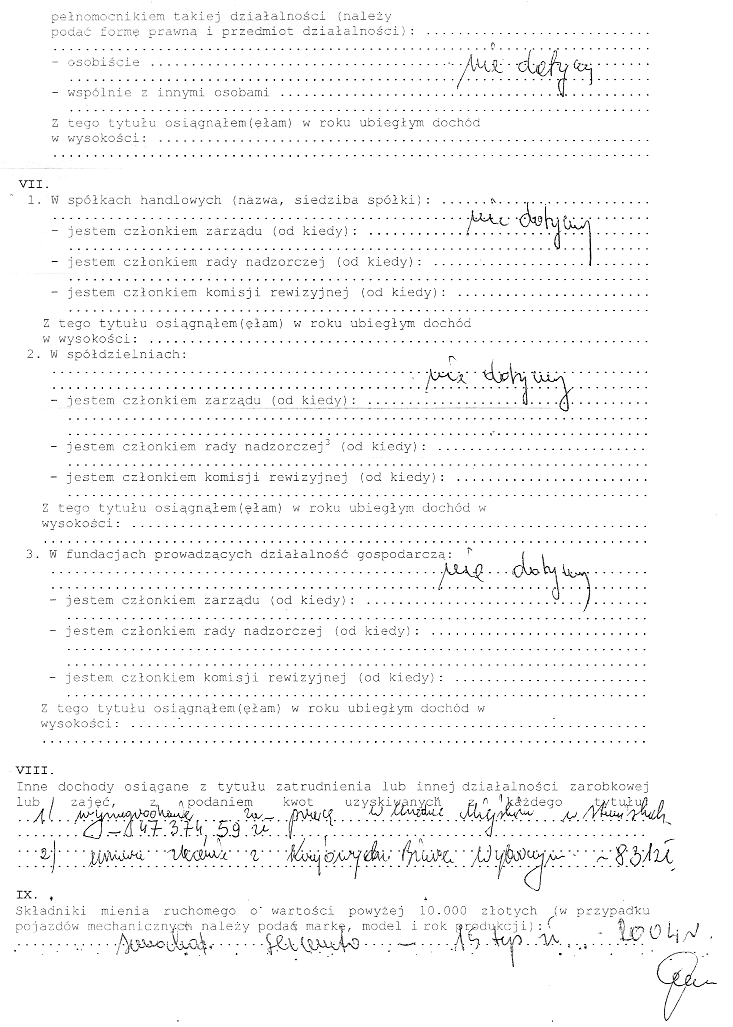 pełnomocnikiem takiej działalności (należy
podać formę prawną i przedmiot działalności): ..............................
- osobiście ..............................
nie dotyczy
- wspólnie z innymi osobami ..............................
Z tego tytułu osiągnąłem(ęłam) w roku ubiegłym dochód
w wysokości: ..............................
VII.
1. W spółkach handlowych (nazwa, siedziba spółki): ..............................
nie dotyczy
- jestem członkiem zarządu (od kiedy): ..............................
- jestem członkiem rady nadzorczej (od kiedy): ..............................
- jestem członkiem komisji rewizyjnej (od kiedy): ..............................
Z tego tytułu osiągnąłem(ęłam) w roku ubiegłym dochód
w wysokości: ..............................
2. W spółdzielniach:
nie dotyczy
- jestem członkiem zarządu (od kiedy): ..............................
- jestem członkiem rady nadzorczej³ (od kiedy): ..............................
- jestem członkiem komisji rewizyjnej (od kiedy): ..............................
Z tego tytułu osiągnąłem(ęłam) w roku ubiegłym dochód w
wysokości: ..............................
3. W fundacjach prowadzących działalność gospodarczą:
nie dotyczy
- jestem członkiem zarządu (od kiedy): ..............................
- jestem członkiem rady nadzorczej (od kiedy): ..............................
- jestem członkiem komisji rewizyjnej (od kiedy): ..............................
Z tego tytułu osiągnąłem(ęłam) w roku ubiegłym dochód w
wysokości: ..............................
VIII.
Inne dochody osiągane z tytułu zatrudnienia lub innej działalności zarobkowej
lub zajęć, z podaniem kwot uzyskiwanych z każdego tytułu:
1/ wynagrodzenie za pracę w Urzędzie Miejskim w
47.374,59 zł
2/ umowa zlecenie z Krajowym Biurem Wyborczym - 831 zł
IX.
Składniki mienia ruchomego o wartości powyżej 10.000 złotych (w przypadku
pojazdów mechanicznych należy podać markę, model i rok produkcji):
samochód - 15 tys. zł 2004 r.